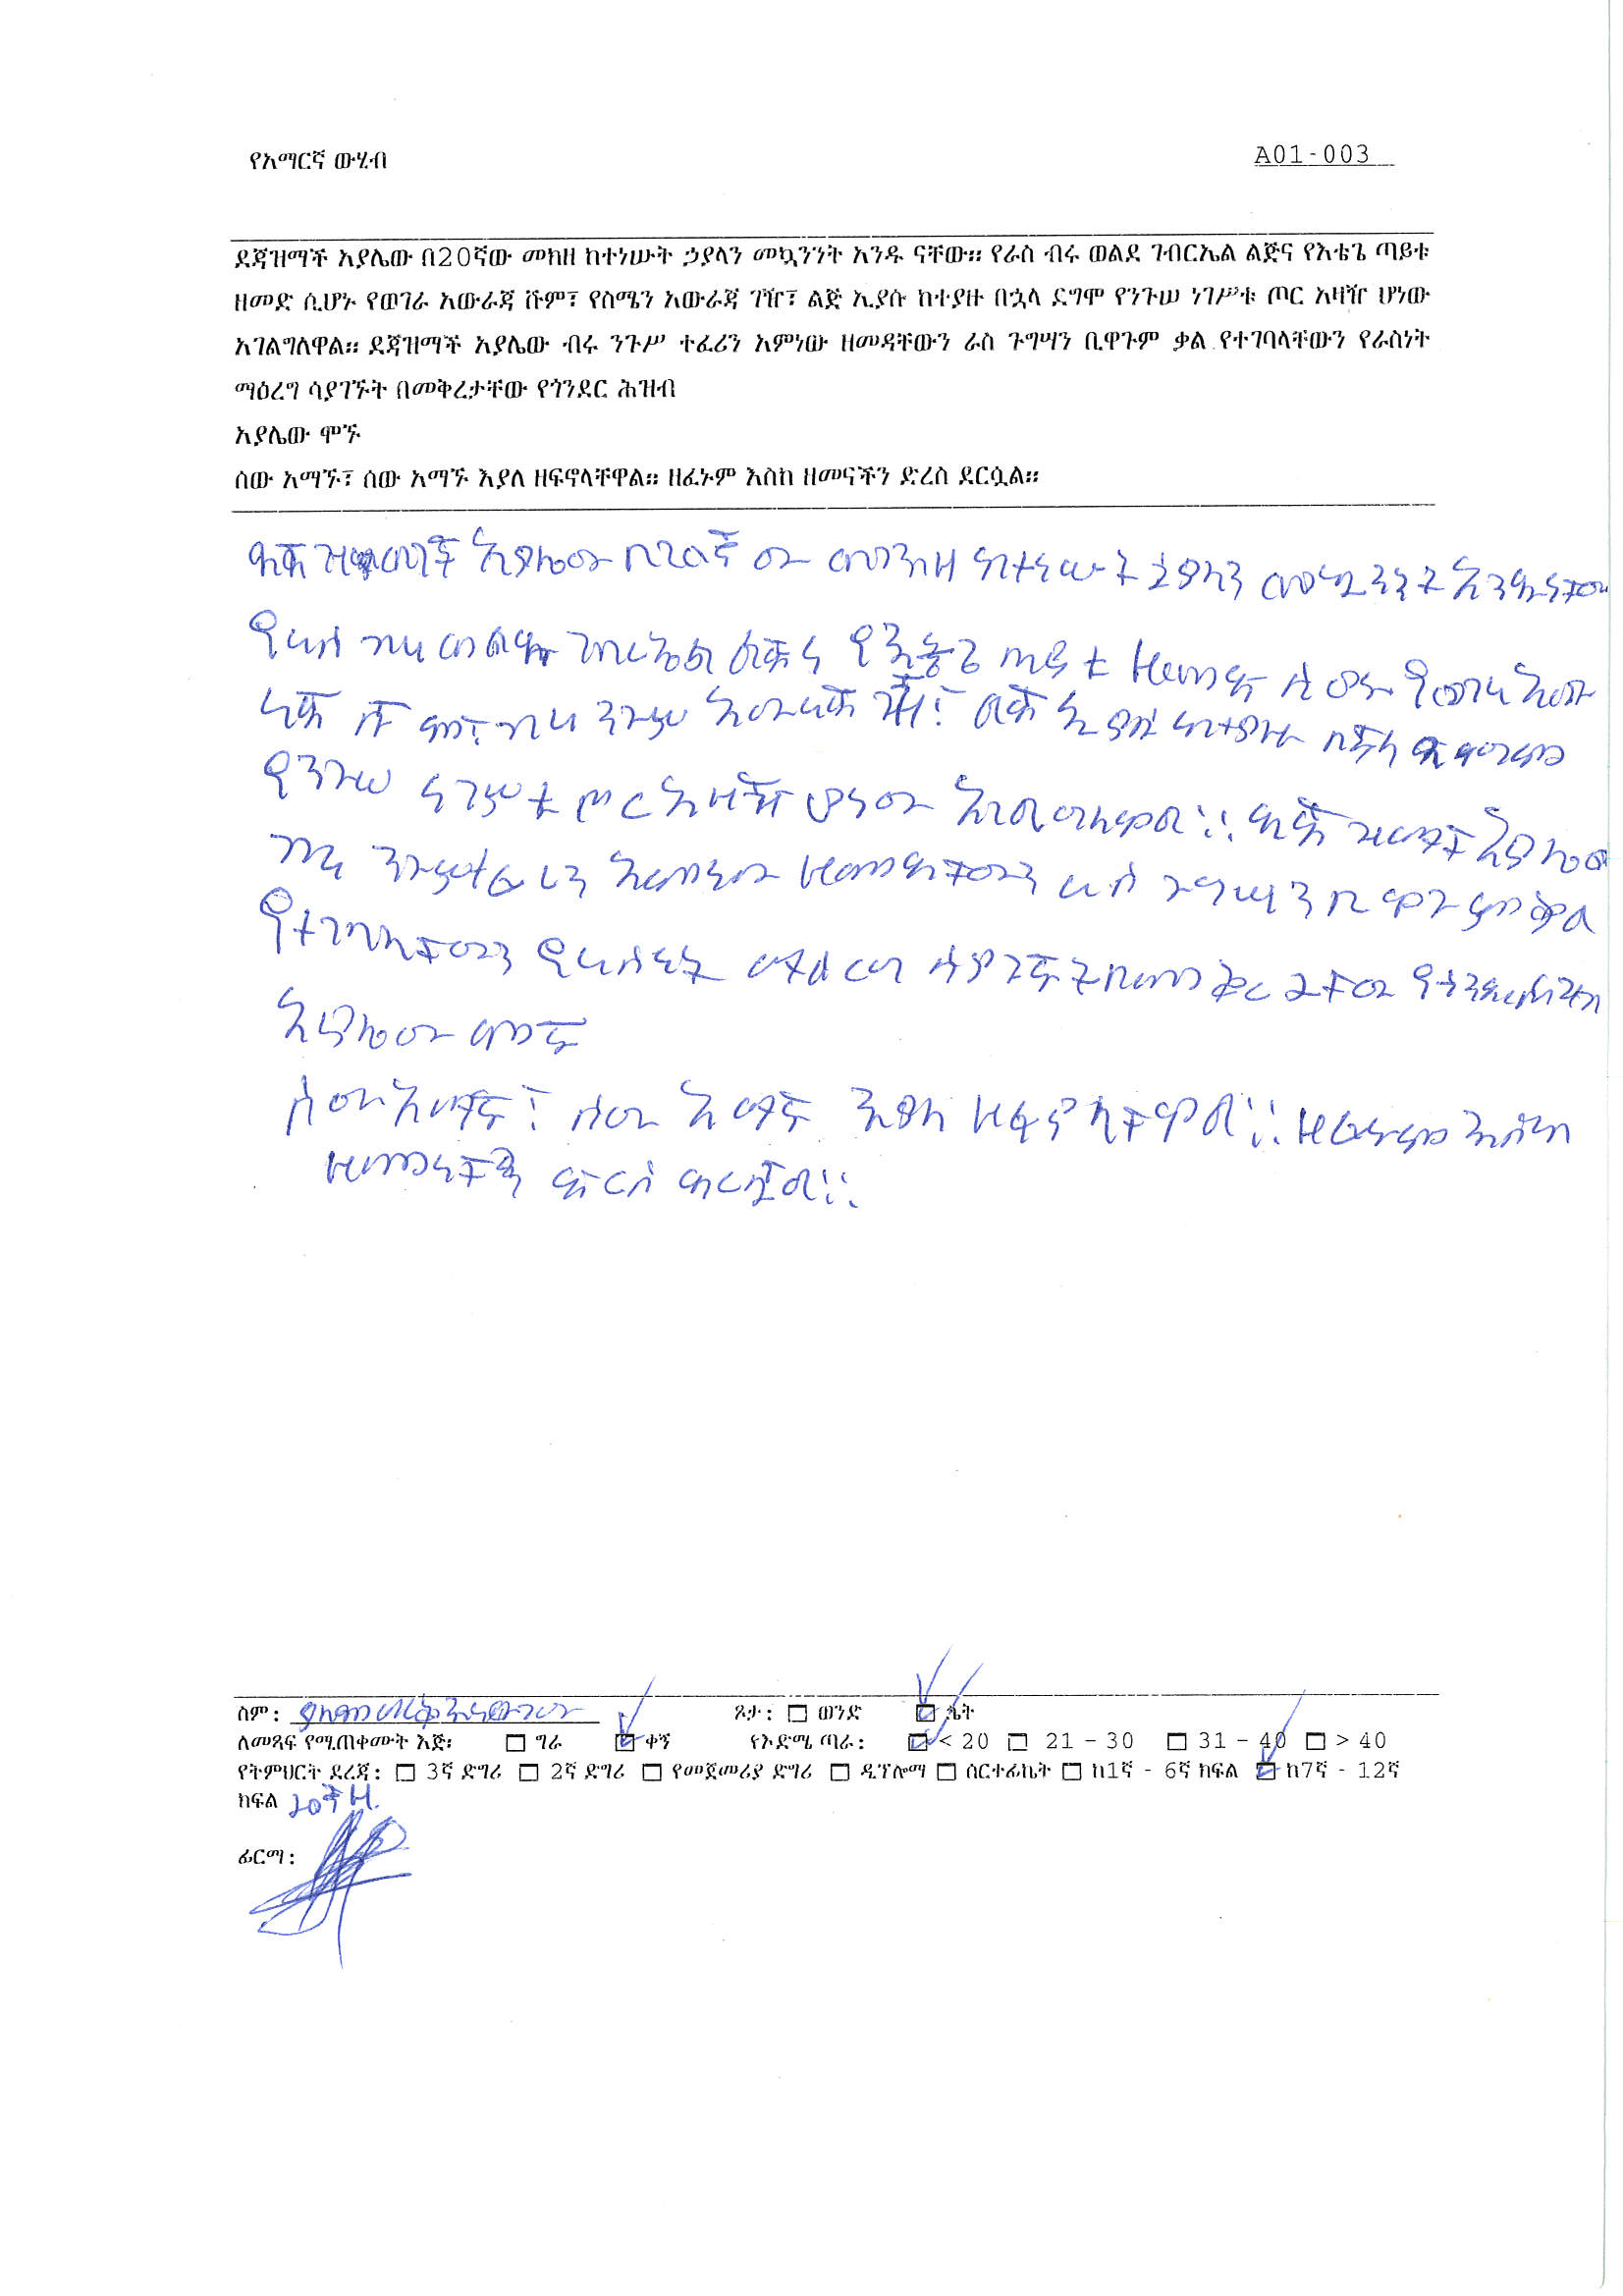 የአማርኛ ውሂብ
A01-003
ደጃዝማች አያሌው በ20ኛው መክዘ ከተነሡት ኃያላን መኳንንት አንዱ ናቸው። የራስ ብሩ ወልደ ገብርኤል ልጅና የእቴጌ ጣይቱ
ዘመድ ሲሆኑ የወገራ አውራጃ ሹም፣ የስሜን አውራጃ ገዥ፣ ልጅ ኢያሱ ከተያዙ በኋላ ደግሞ የንጉሠ ነገሥቱ ጦር አዛዥ ሆነው
አገልግለዋል። ደጃዝማች አያሌው ብሩ ንጉሥ ተፈሪን አምነው ዘመዳቸውን ራስ ጉግሣን ቢዋጉም ቃል የተገባላቸውን የራስነት
ማዕረግ ሳያገኙት በመቅረታቸው የጎንደር ሕዝብ
አያሌው ሞኙ
ሰው አማኙ፣ ሰው አማኙ እያለ ዘፍኖላቸዋል። ዘፈኑም እስከ ዘመናችን ድረስ ደርሷል።
አያሌው በ20ኛ ው መንከዘ ከተነሡት ኃያላን መኳንንት አንዱ ናቸው
የራስ ብሩ ወልደ ገብርኤል ልጅና የእቴጌ ጣይቱ ዘመድ ሲሆኑ የወገራ አውራ
ልጅ ኢያሱ ከተያዙ በኋላ ደግሞ
የንጉሠ ነገሥቱ ጦር አዛዥ ሆነው አገልግለዋል። ደጃዝማች አያሌው
ብሩ ንጉሥ ተፈሪን አምነው ዘመዳቸውን ራስ ጉግሣን ቢዋጉም ቃል
የተገባላቸውን የራስነት ማዕረግ ሳያገኙት በመቅረታቸው
አያሌው ሞኙ
ሰው አማኙ፣ ሰው አማኙ እያለ ዘፍኖላቸዋል። ዘፈኑም እስከ
ዘመናችን ድረስ ደርሷል።
ስም:
ጾታ: ወንድ ሴት
ለመጻፍ የሚጠቀሙት እጅ: ግራ ቀኝ የእድሜ ጣራ: < 20 21 - 30 31 - 40 > 40
የትምህርት ደረጃ: 3ኛ ድግሪ 2ኛ ድግሪ የመጀመሪያ ድግሪ ዲፕሎማ ሰርተፊኬት ከ1ኛ - 6ኛ ክፍል ከ7ኛ - 12ኛ
ክፍል
ፊርማ: